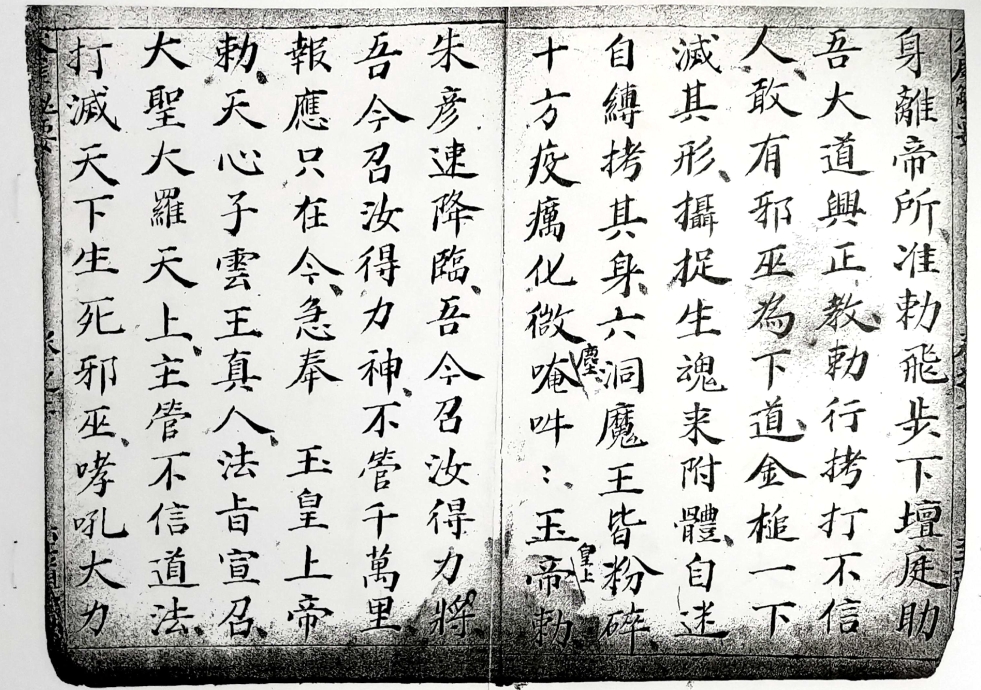 身離帝所准勅飛步下壇庭助
吾大道興正教勅行拷打不信
人敢有邪巫為下道金槌一下
滅其形攝捉生魂来附體自迷
自縛拷其身六洞魔王皆粉碎
十方疫癘化微塵唵吽〻玉皇上帝勅
朱彥速降臨吾今召汝得力將
吾今召汝得力神不管千萬里
報應只在今急奉 玉皇上帝
勅天心子雲王真人法旨宣召
大聖大羅天上主管不信道法
打滅天下生死邪巫哮吼大力